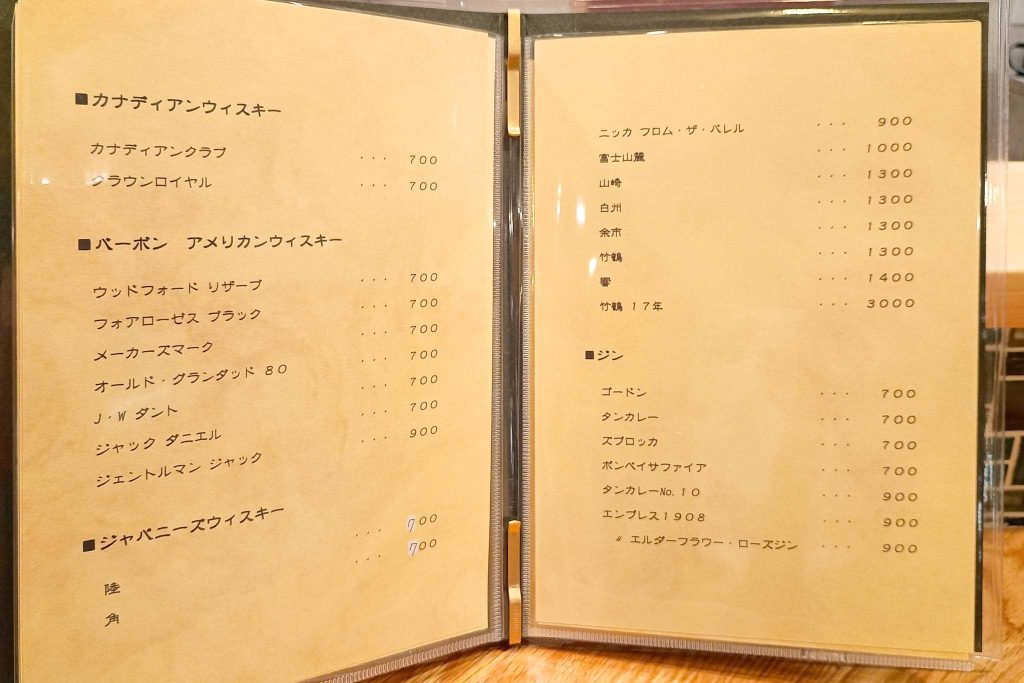 ■カナディアンウィスキー
カナディアンクラブ ・・・ 700
クラウンロイヤル ・・・ 700
■バーボン アメリカンウィスキー
ウッドフォード リザーブ ・・・ 700
フォアローゼス ブラック ・・・ 700
メーカーズマーク ・・・ 700
オールド・グランダッド 80 ・・・ 700
J・W ダント ・・・ 700
ジャック ダニエル ・・・ 700
ジェントルマン ジャック ・・・ 900
■ジャパニーズウィスキー
陸 ・・・ 700
角 ・・・ 700
ニッカ フロム・ザ・バレル ・・・ 900
富士山麓 ・・・ 1000
山崎 ・・・ 1300
白州 ・・・ 1300
余市 ・・・ 1300
竹鶴 ・・・ 1300
響 ・・・ 1400
竹鶴 17年 ・・・ 3000
■ジン
ゴードン ・・・ 700
タンカレー ・・・ 700
ズブロッカ ・・・ 700
ボンベイサファイア ・・・ 700
タンカレーNo.10 ・・・ 900
エンプレス1908 ・・・ 900
〃 エルダーフラワー・ローズジン ・・・ 900